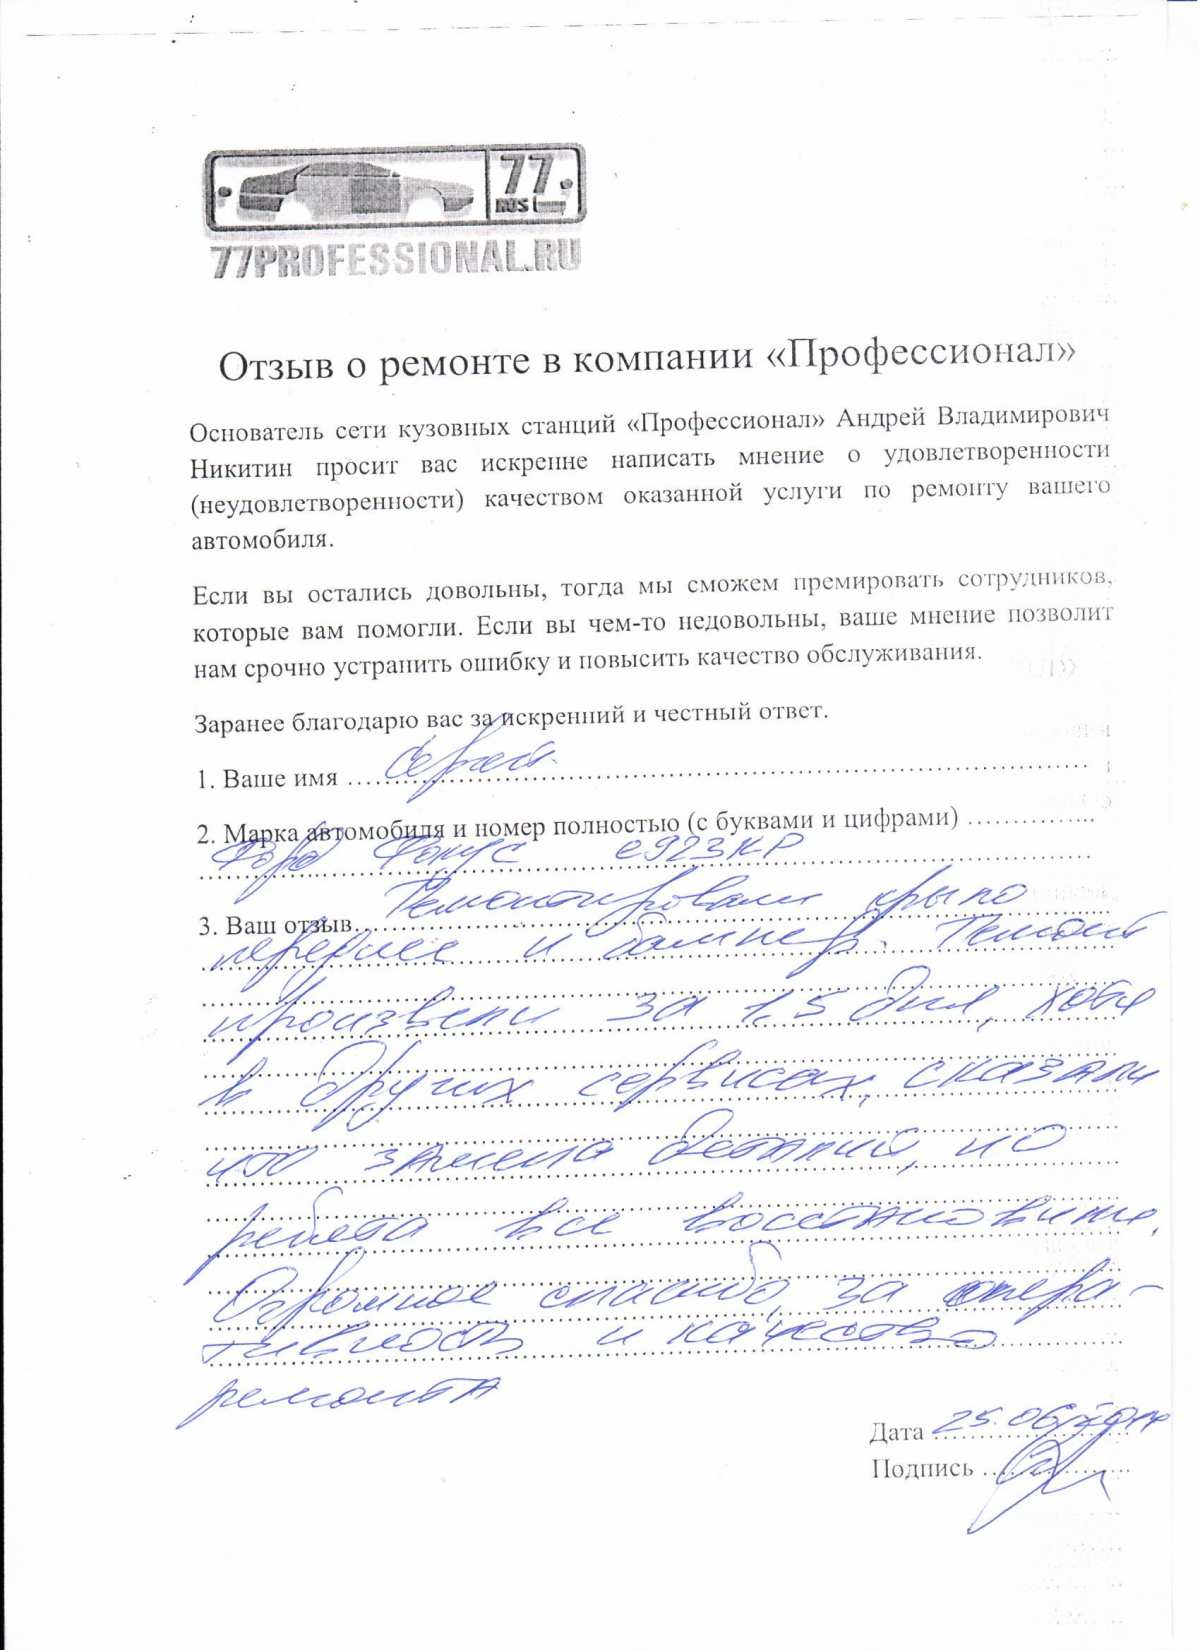 77
RUS
77PROFESSIONAL.RU
Отзыв о ремонте в компании «Профессионал»
Основатель сети кузовных станций «Профессионал» Андрей Владимирович
Никитин просит вас искренне написать мнение о удовлетворенности
(неудовлетворенности) качеством оказанной услуги по ремонту вашего
автомобиля.
Если вы остались довольны, тогда мы сможем премировать сотрудников,
которые вам помогли. Если вы чем-то недовольны, ваше мнение позволит
нам срочно устранить ошибку и повысить качество обслуживания.
Заранее благодарю вас за искренний и честный ответ.
1. Ваше имя Сергей
2. Марка автомобиля и номер полностью (с буквами и цифрами)
Форд Фокус е923КР
3. Ваш отзыв Ремонтировали крыло
переднее и бампер. Ремонт
произвели за 1,5 дня, хотя
в других сервисах, сказали
что замена деталей, но
ребята все восстановили.
Огромное спасибо, за опера-
тивность и качество
ремонта
Дата 25.06.2014
Подпись